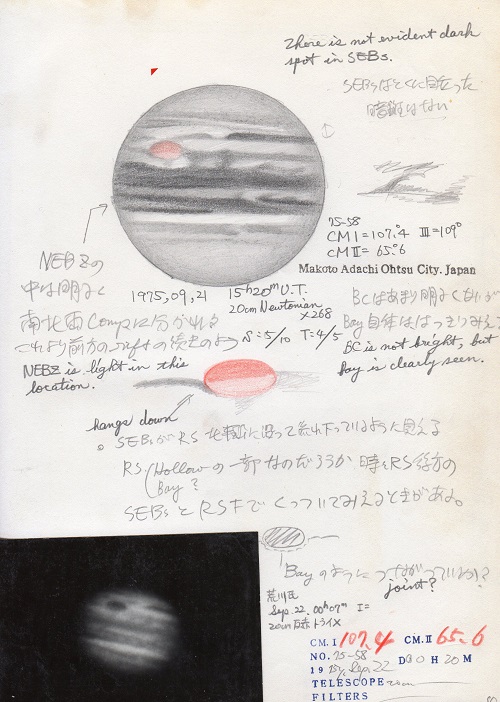 There is not evident dark
spot in SEBs.
SEBsはとくに目立った
暗斑はない
75-58
CMI=107°.4 III=109°
CMII=65°.6
Makoto Adachi Ohtsu City. Japan
1975,09,21 15h20m U.T.
20cm Newtonian
×268
S:5/10 T:4/5
NEBZの
中は明るく
南北両Comp.に分かれる
これより前方の
NEBZ is light in this
location.
BCはあまり明るくないが
Bay自体ははっきりみえ
BC is not bright, but
bay is clearly seen.
hangs down
SEBsがRS北部に沿って流れ下っているように見える
RS Hollowの一部なのだろうか 時々RS後方の
Bay?
SEBsとRSまでくっついてみえるときがある。
Bayのようにつながっている?
joint?
荒川氏
Sep. 22. 00h07m I=
20cm 反赤 トライX
CM.I 107.4 CM.II 65.6
NO. 75-58
1975, Sep. 22 D 00 H 20 M
TELESCOPE 20cm
FILTERS